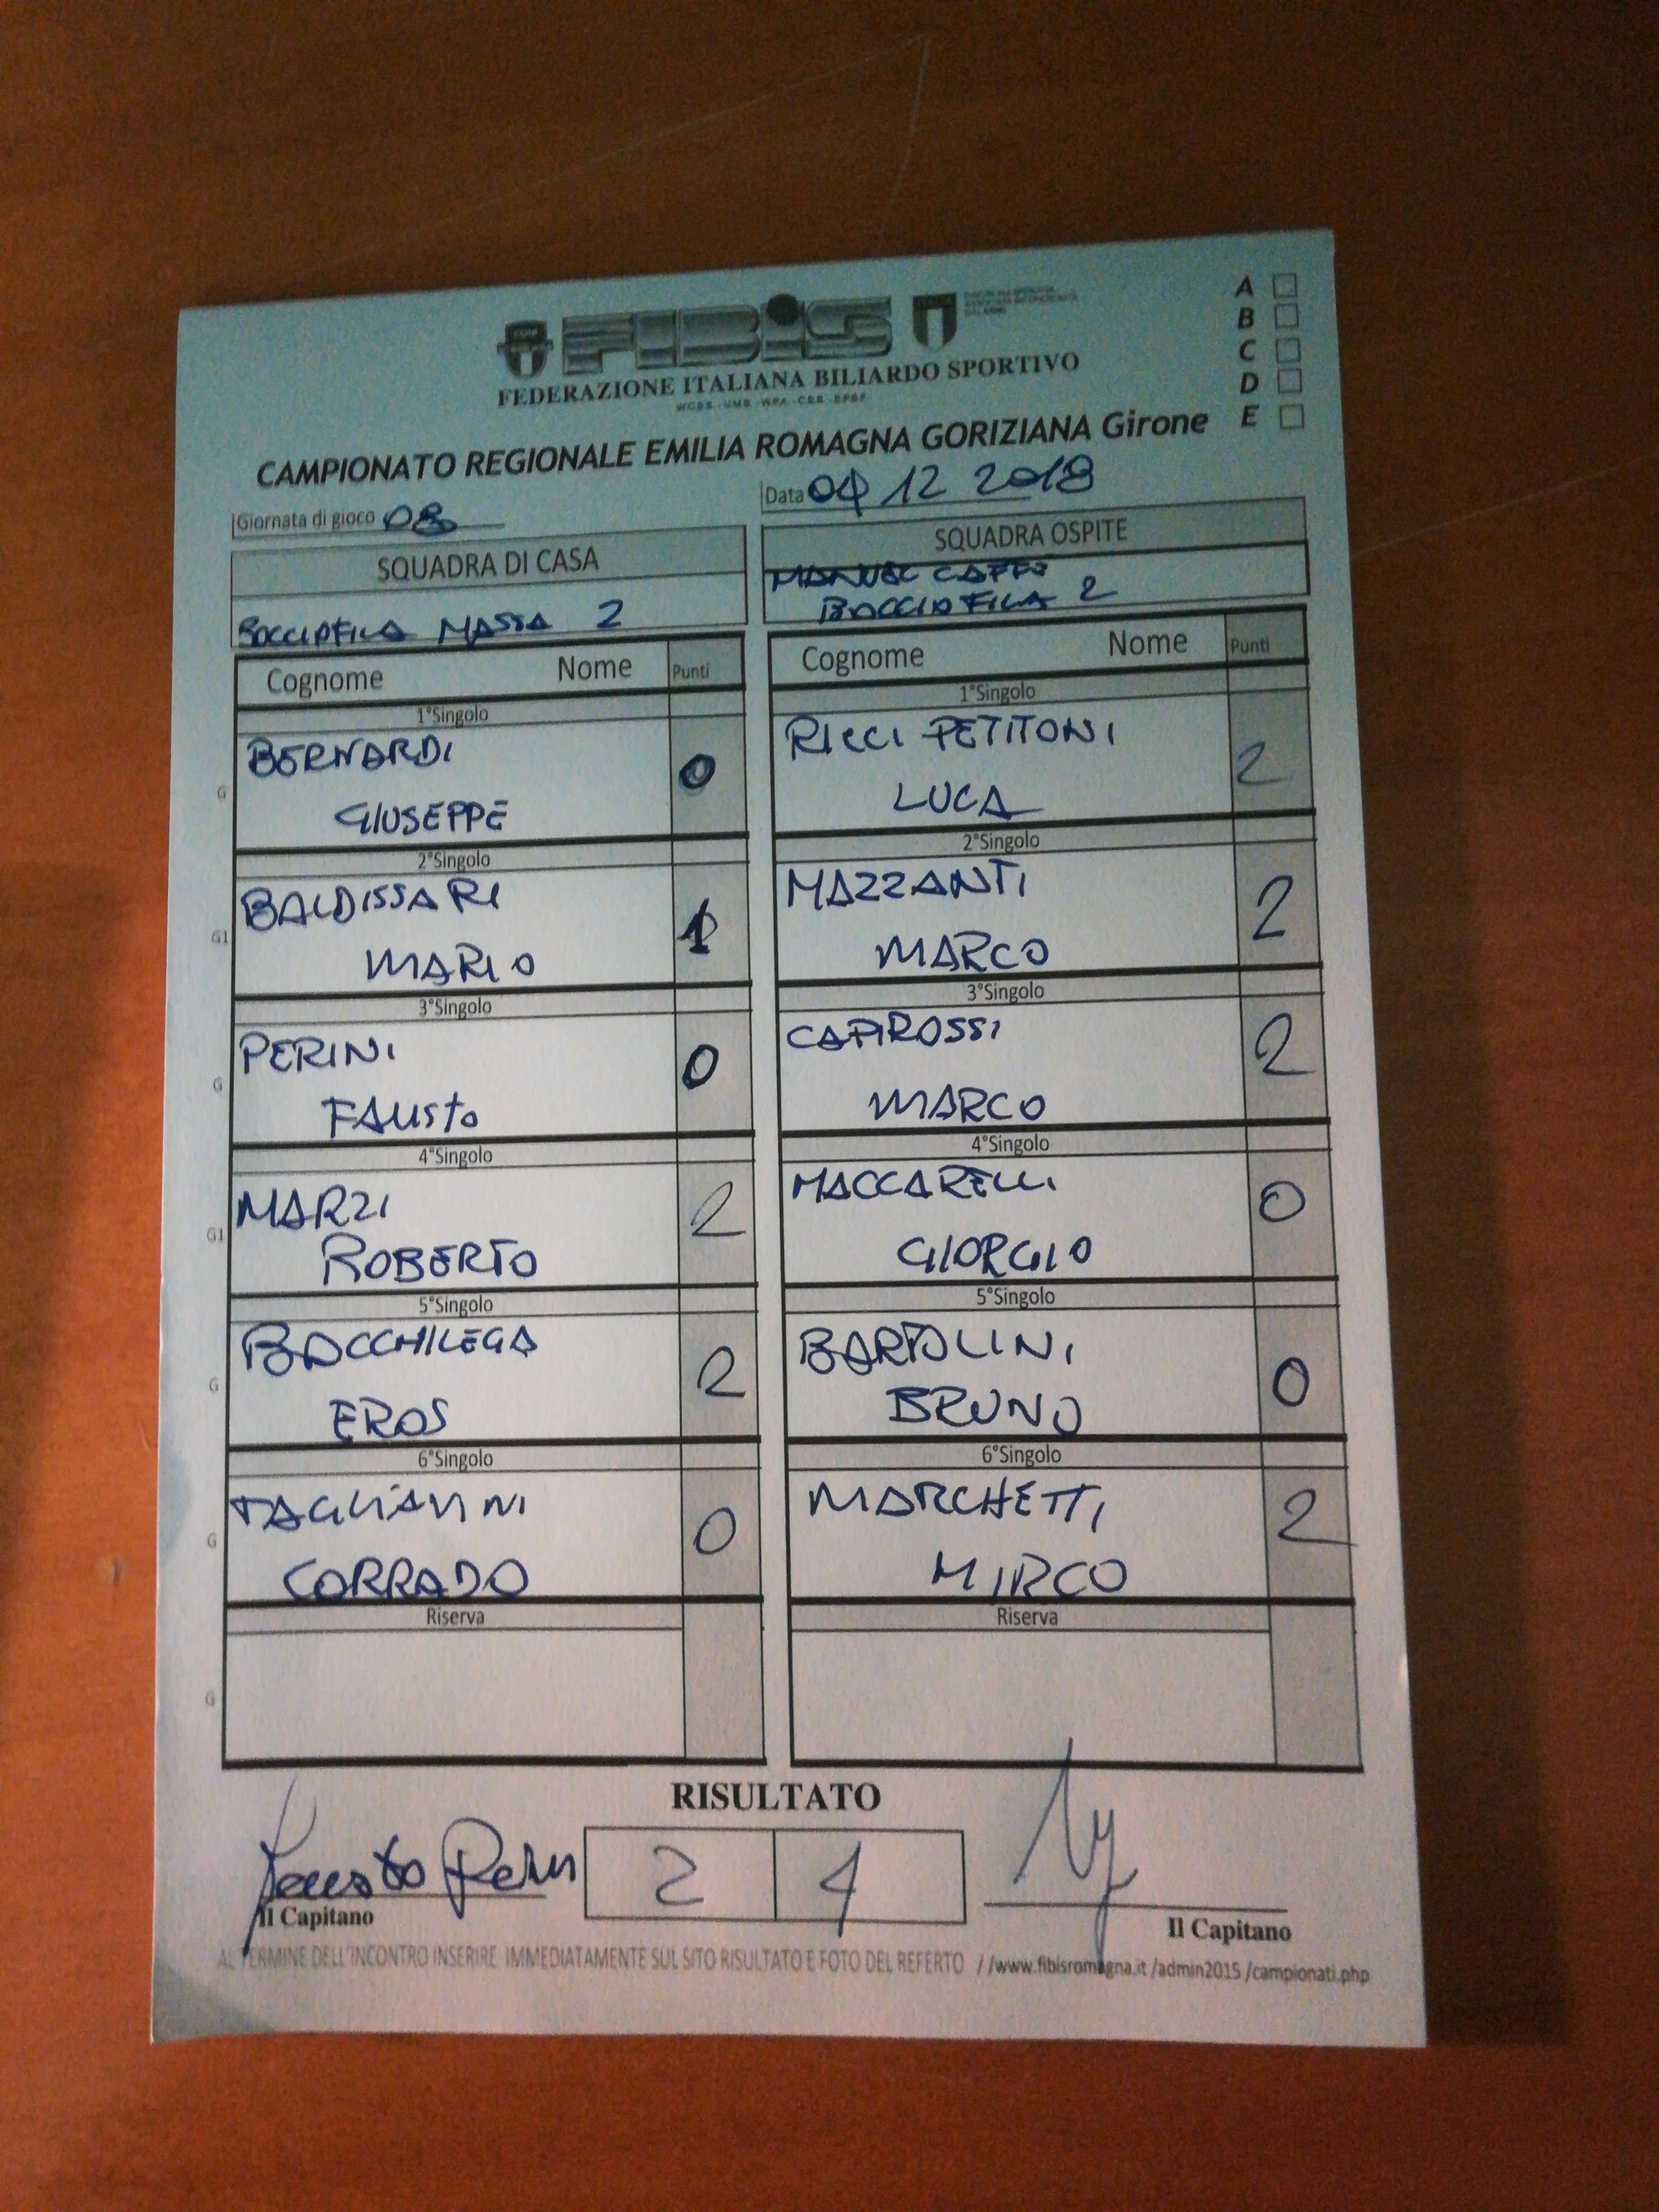 FIBiS
FEDERAZIONE ITALIANA BILIARDO SPORTIVO
A
B
C
D
E
CAMPIONATO REGIONALE EMILIA ROMAGNA GORIZIANA Girone
Giornata di gioco 08
Data 04 12 2018
SQUADRA DI CASA
BOCCIOFILA MASSA 2
SQUADRA OSPITE
MANUEL CAFFÈ
BOCCIOFILA 2
Cognome Nome Punti
Cognome Nome Punti
1°Singolo
1°Singolo
G BERNARDI
GIUSEPPE
0
RICCI PETITONI
LUCA
2
2°Singolo
2°Singolo
G1 BALDISSARI
MARIO
1
MAZZANTI
MARCO
2
3°Singolo
3°Singolo
G PERINI
FAUSTO
0
CAPIROSSI
MARCO
2
4°Singolo
4°Singolo
G1 MARZI
ROBERTO
2
MACCARELLI
GIORGIO
0
5°Singolo
5°Singolo
G BACCHILEGA
EROS
2
BARTOLINI
BRUNO
0
6°Singolo
6°Singolo
G TAGLIAVINI
CORRADO
0
MARCHETTI
MIRCO
2
Riserva
Riserva
G
RISULTATO
2 4
Il Capitano
Il Capitano
AL TERMINE DELL'INCONTRO INSERIRE IMMEDIATAMENTE SUL SITO RISULTATO E FOTO DEL REFERTO //www.fibisromagna.it /admin2015 /campionati.php